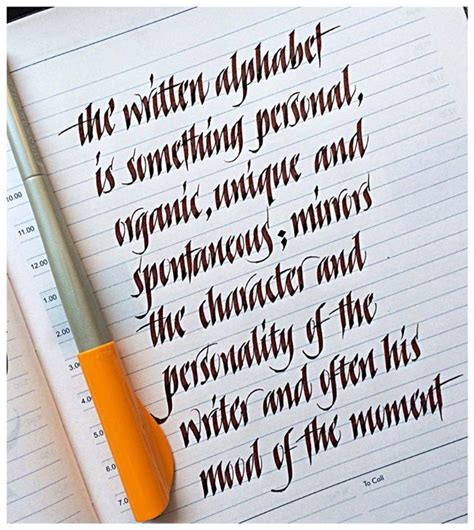 the written alphabet
is something personal,
organic, unique and
spontaneous; mirrors
the character and
personality of the
writer and often his
mood of the moment
10.00
12.00
1.00
2.00
6.00
7.00
To Call